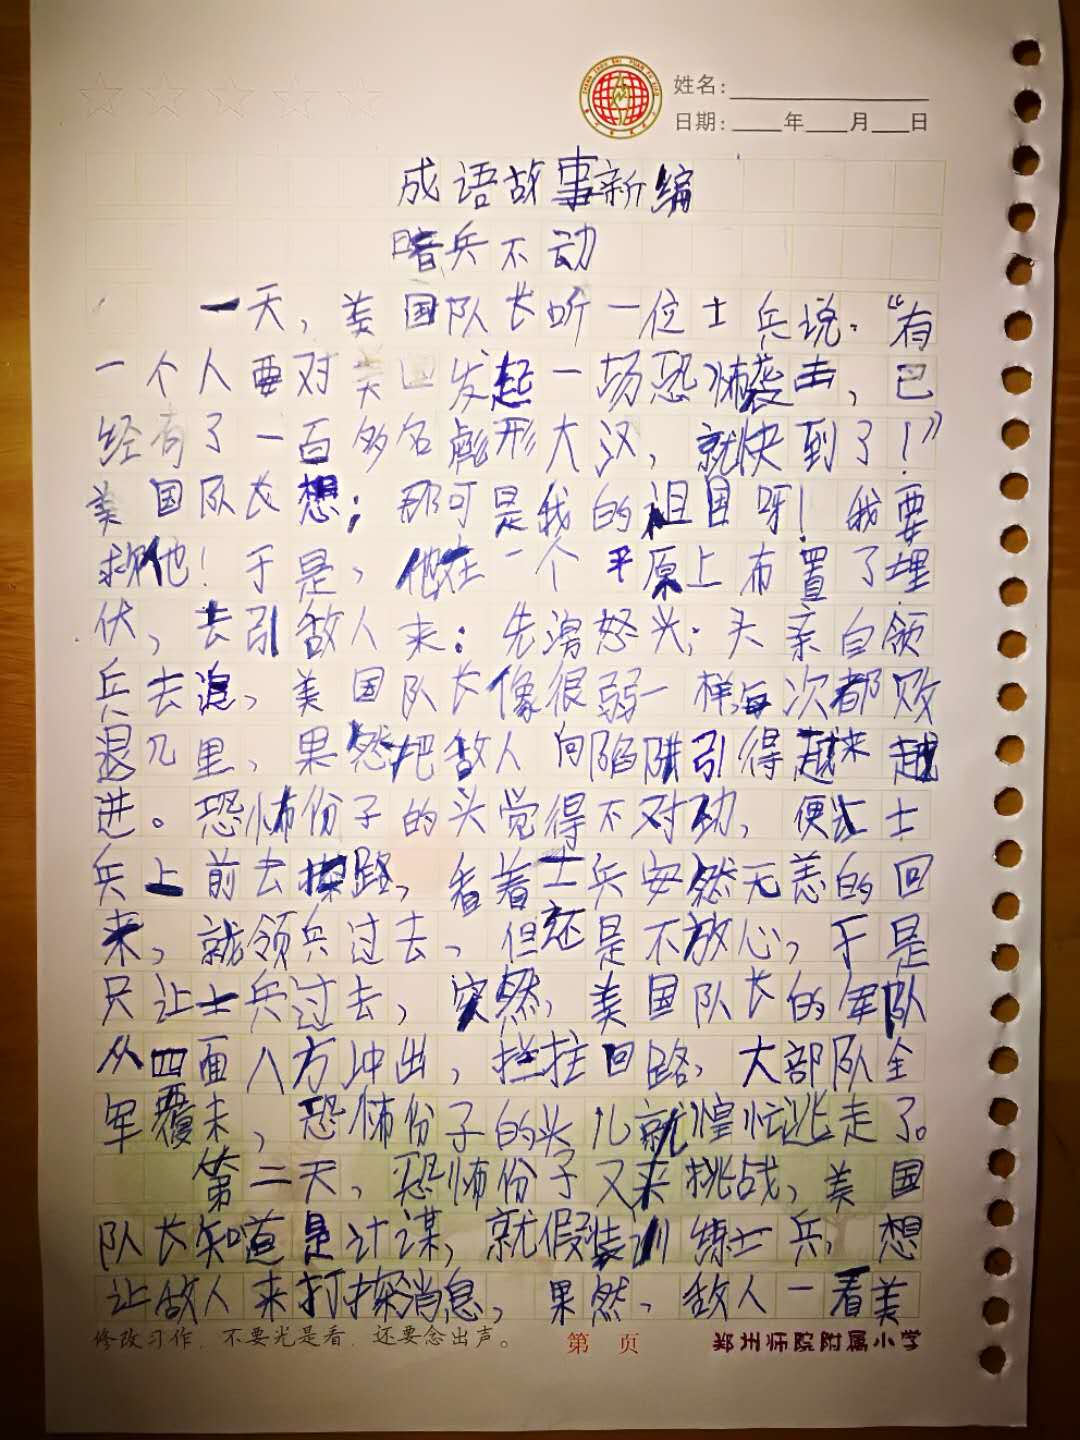 姓名:
日期: 年 月 日
成语故事新编
暗兵不动
一天，美国队长听一位士兵说："有
一个人要对美国发起一场恐怖袭击，已
经有了一百多名彪形大汉，就快到了！"
美国队长想；那可是我的祖国呀！我要
救他！于是，他在一个平原上布置了埋
伏，去引敌人来：先泻怒兴；头亲自领
兵去追，美国队长像很弱一样，每次都败
退几里，果然把敌人向陷阱引得越来越
进。恐怖份子的头觉得不对劲，便让士
兵上前去探路，看着士兵安然无恙的回
来，就领兵过去，但还是不放心，于是
只让士兵过去，突然，美国队长的军队
从四面八方冲出，拦拄回路，大部队全
军覆未，恐怖份子的头儿就惶忙逃走了。
第二天，恐怖份子又来挑战，美国
队长知道是计谋，就假装训练士兵，想
让敌人来打探消息，果然，敌人一看美
修改习作，不要光是看，还要念出声。 第 页 郑州师院附属小学